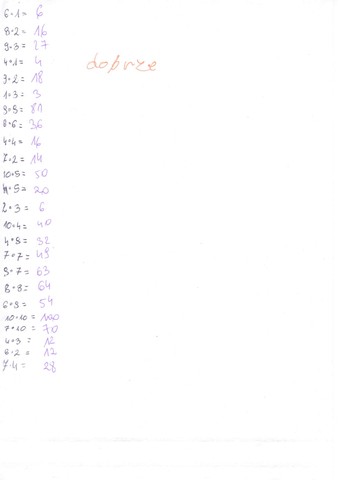 6·1= 6
8·2= 16
9·3= 27
4·1= 4
9·2= 18
1·3= 3
9·9= 81
6·6= 36
4·4= 16
7·2= 14
10·5= 50
4·5= 20
2·3= 6
10·4= 40
4·8= 32
7·7= 49
9·7= 63
8·8= 64
6·9= 54
10·10= 100
7·10= 70
4·3= 12
6·2= 12
7·4= 28
dobrze